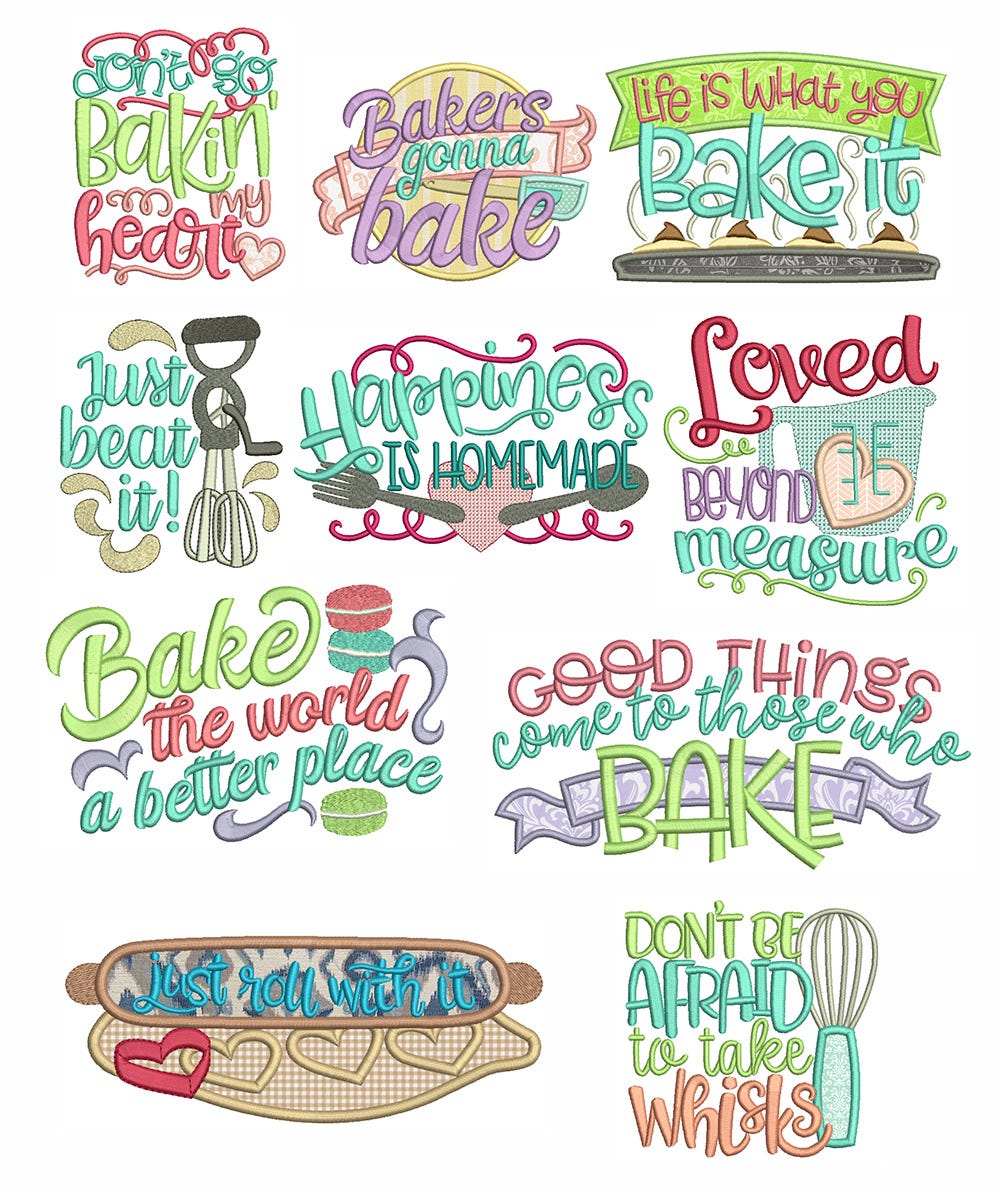 don't go
Bakin'
my
heart
Bakers
gonna
bake
Life is what you
Bake it
Just
beat
it!
Happiness
IS HOMEMADE
Loved
BEYOND
measure
Bake
the world
a better place
GOOD THINGS
come to those who
BAKE
just roll with it
DON'T BE
AFRAID
to take
whisks